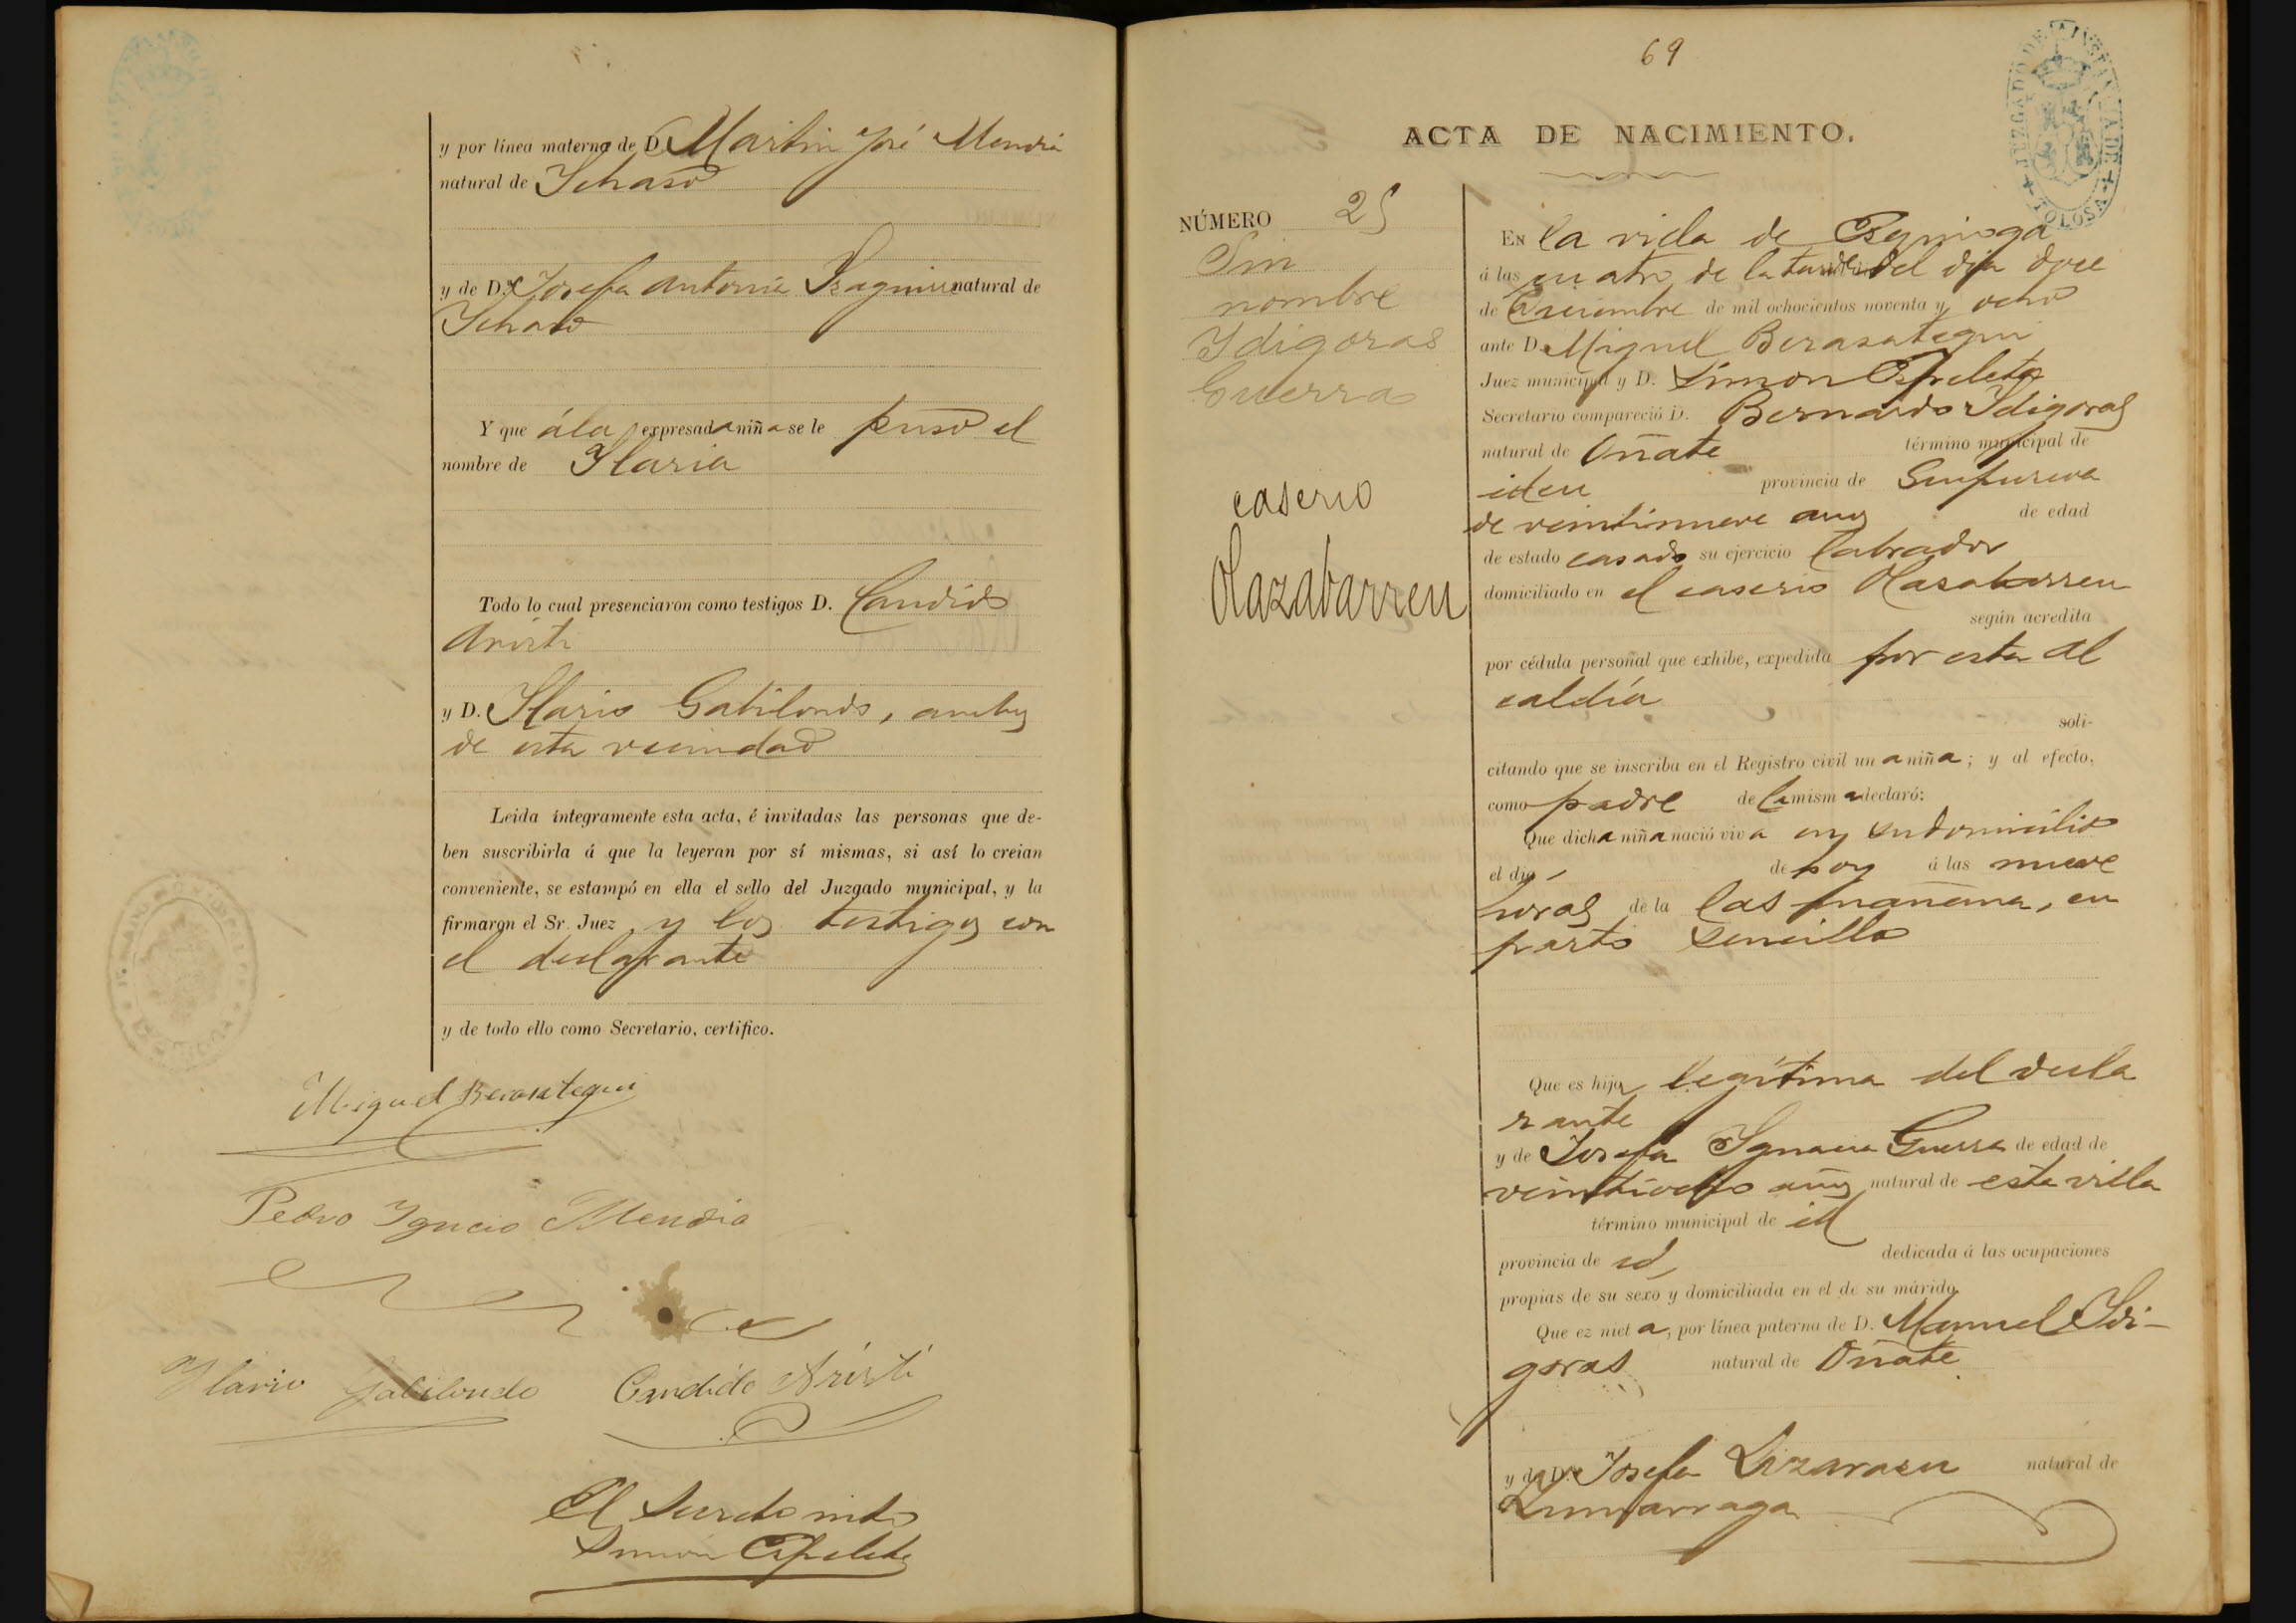 y por línea materna de D. Martin José Mendia
natural de Ichaso
y de D.ª Josefa Antonia Ysaguirre natural de
Ichaso
Y que á la expresada niña se le puso el
nombre de Ylaria
Todo lo cual presenciaron como testigos D. Candido
Aristi
y D. Ylario Gabilondo, ambos
de esta vecindad
Leida íntegramente esta acta, é invitadas las personas que de-
ben suscribirla á que la leyeran por sí mismas, si así lo creian
conveniente, se estampó en ella el sello del Juzgado municipal, y la
firmaron el Sr. Juez, y los testigos con
el declarante
y de todo ello como Secretario, certifico.
Miguel Berasategui
Pedro Ygncio Mendia
Ylario Gabilondo Candido Aristi
El Secreto
Simon Espeleta
69
JUZGADO DE 1A INSTANCIA DE TOLOSA
ACTA DE NACIMIENTO.
NÚMERO 25
Sin
nombre
Ydigoras
Guerra
caserio
Olazabarren
En la villa de Ezquioga
á las cuatro de la tarde del dia doce
de Diciembre de mil ochocientos noventa y ocho
ante D. Miguel Berasategui
Juez municipal y D. Simon Espeleta
Secretario compareció D. Bernardo Ydigoras
natural de Oñate término municipal de
idem provincia de Guipuzcoa
de veintinueve años de edad
de estado casado su ejercicio labrador
domiciliado en el caserio Olasabarren
según acredita
por cédula personal que exhibe, expedida por esta Al
caldía
soli-
citando que se inscriba en el Registro civil una niña; y al efecto,
como padre de la misma declaró:
Que dicha niña nació viva en su domicilio
el dia de hoy á las nueve
horas de la las mañana, en
parto sencillo
Que es hija legítima del decla
rante
y de Josefa Ygnacia Guerra de edad de
veintiocho años natural de esta villa
término municipal de id
provincia de id, dedicada á las ocupaciones
propias de su sexo y domiciliada en el de su márido.
Que ez nieta, por línea paterna de D. Manuel Ydi-
goras natural de Oñate
y de D.ª Josefa Lizarazu natural de
Zumarraga